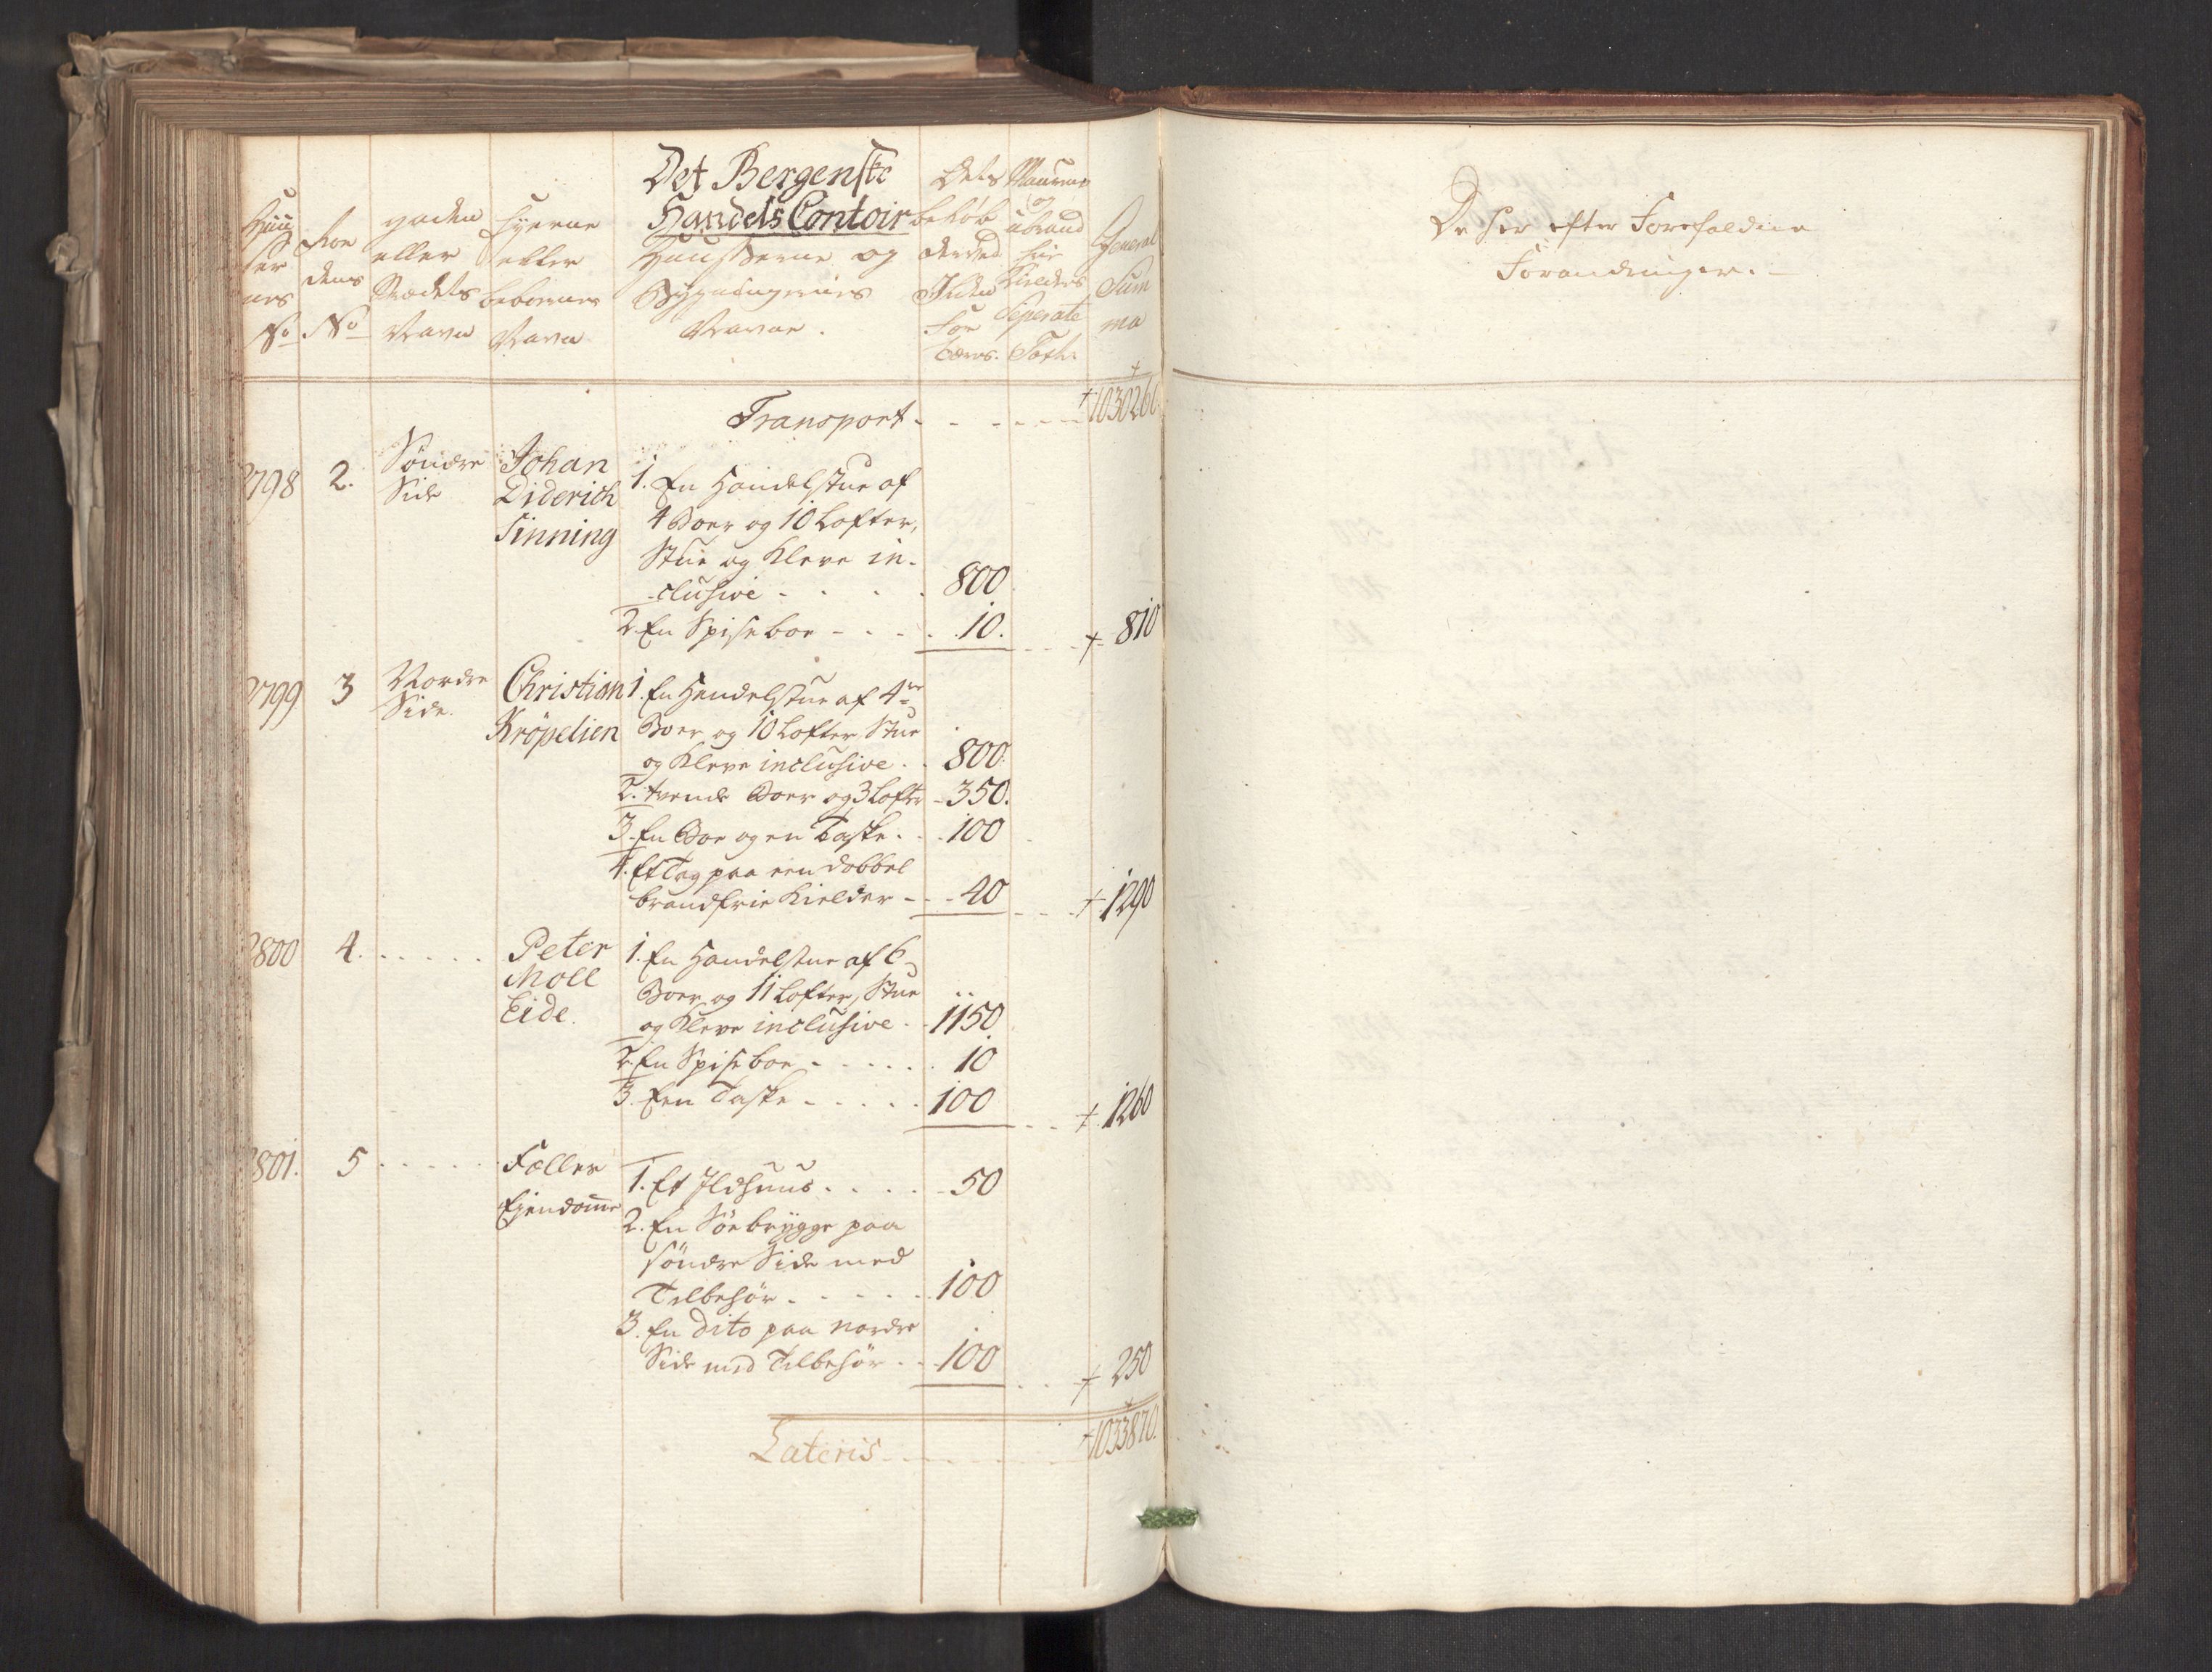 Det Bergenske
Handels Contoir
Huusernes No
Roedens No
gaden eller Stædets Navn
Eyerne eller beboernes Navn
Huusserne og Bygningernes Navne.
Dets beløb derved Inden For tærs.
Muurene og ubrand frie Kielderes Seperate Taxt.
General Summa
Transport - - - - - 1030260.
2798 2. Søndre Side
Johan Diderich Sinning
1. En Handelstue af
4 Boer og 10 Lofter,
Stue og Kleve in-
-clusive - - - - 800.
2. En Spiseboe - - - 10. - - 810
2799 3 Nordre Side.
Christian Kröpelien
1. En Handelstue af 4re
Boer og 10 Lofter Stue
og Kleve inclusive - - 800.
2. tvende Boer og 3 Lofter - 350.
3. En Boe og en Taske - - 100
4. Et Tag paa een dobbel
brandfrie Kielder - - 40 - - 1290
2800 4. - - - - -
Peter Moll Eide.
1. En Handelstue af 6
Boer og 11 Lofter, Stue
og Kleve inclusive - - 1150
2. En Spiseboe - - - - - 10
3. Een Taske - - - - - 100 - - 1260
2801. 5 - - - - -
Fælles Ejendomme
1. Et Ildhuus - - - - 50
2. En Søebrygge paa
søndre Side med
Tilbehør - - - - - 100
3. En dito paa nordre
Side med Tilbehør - - 100 - - 250
Lateris - - - - - 1033870.
De her efter Forefaldne
Forandringer. -